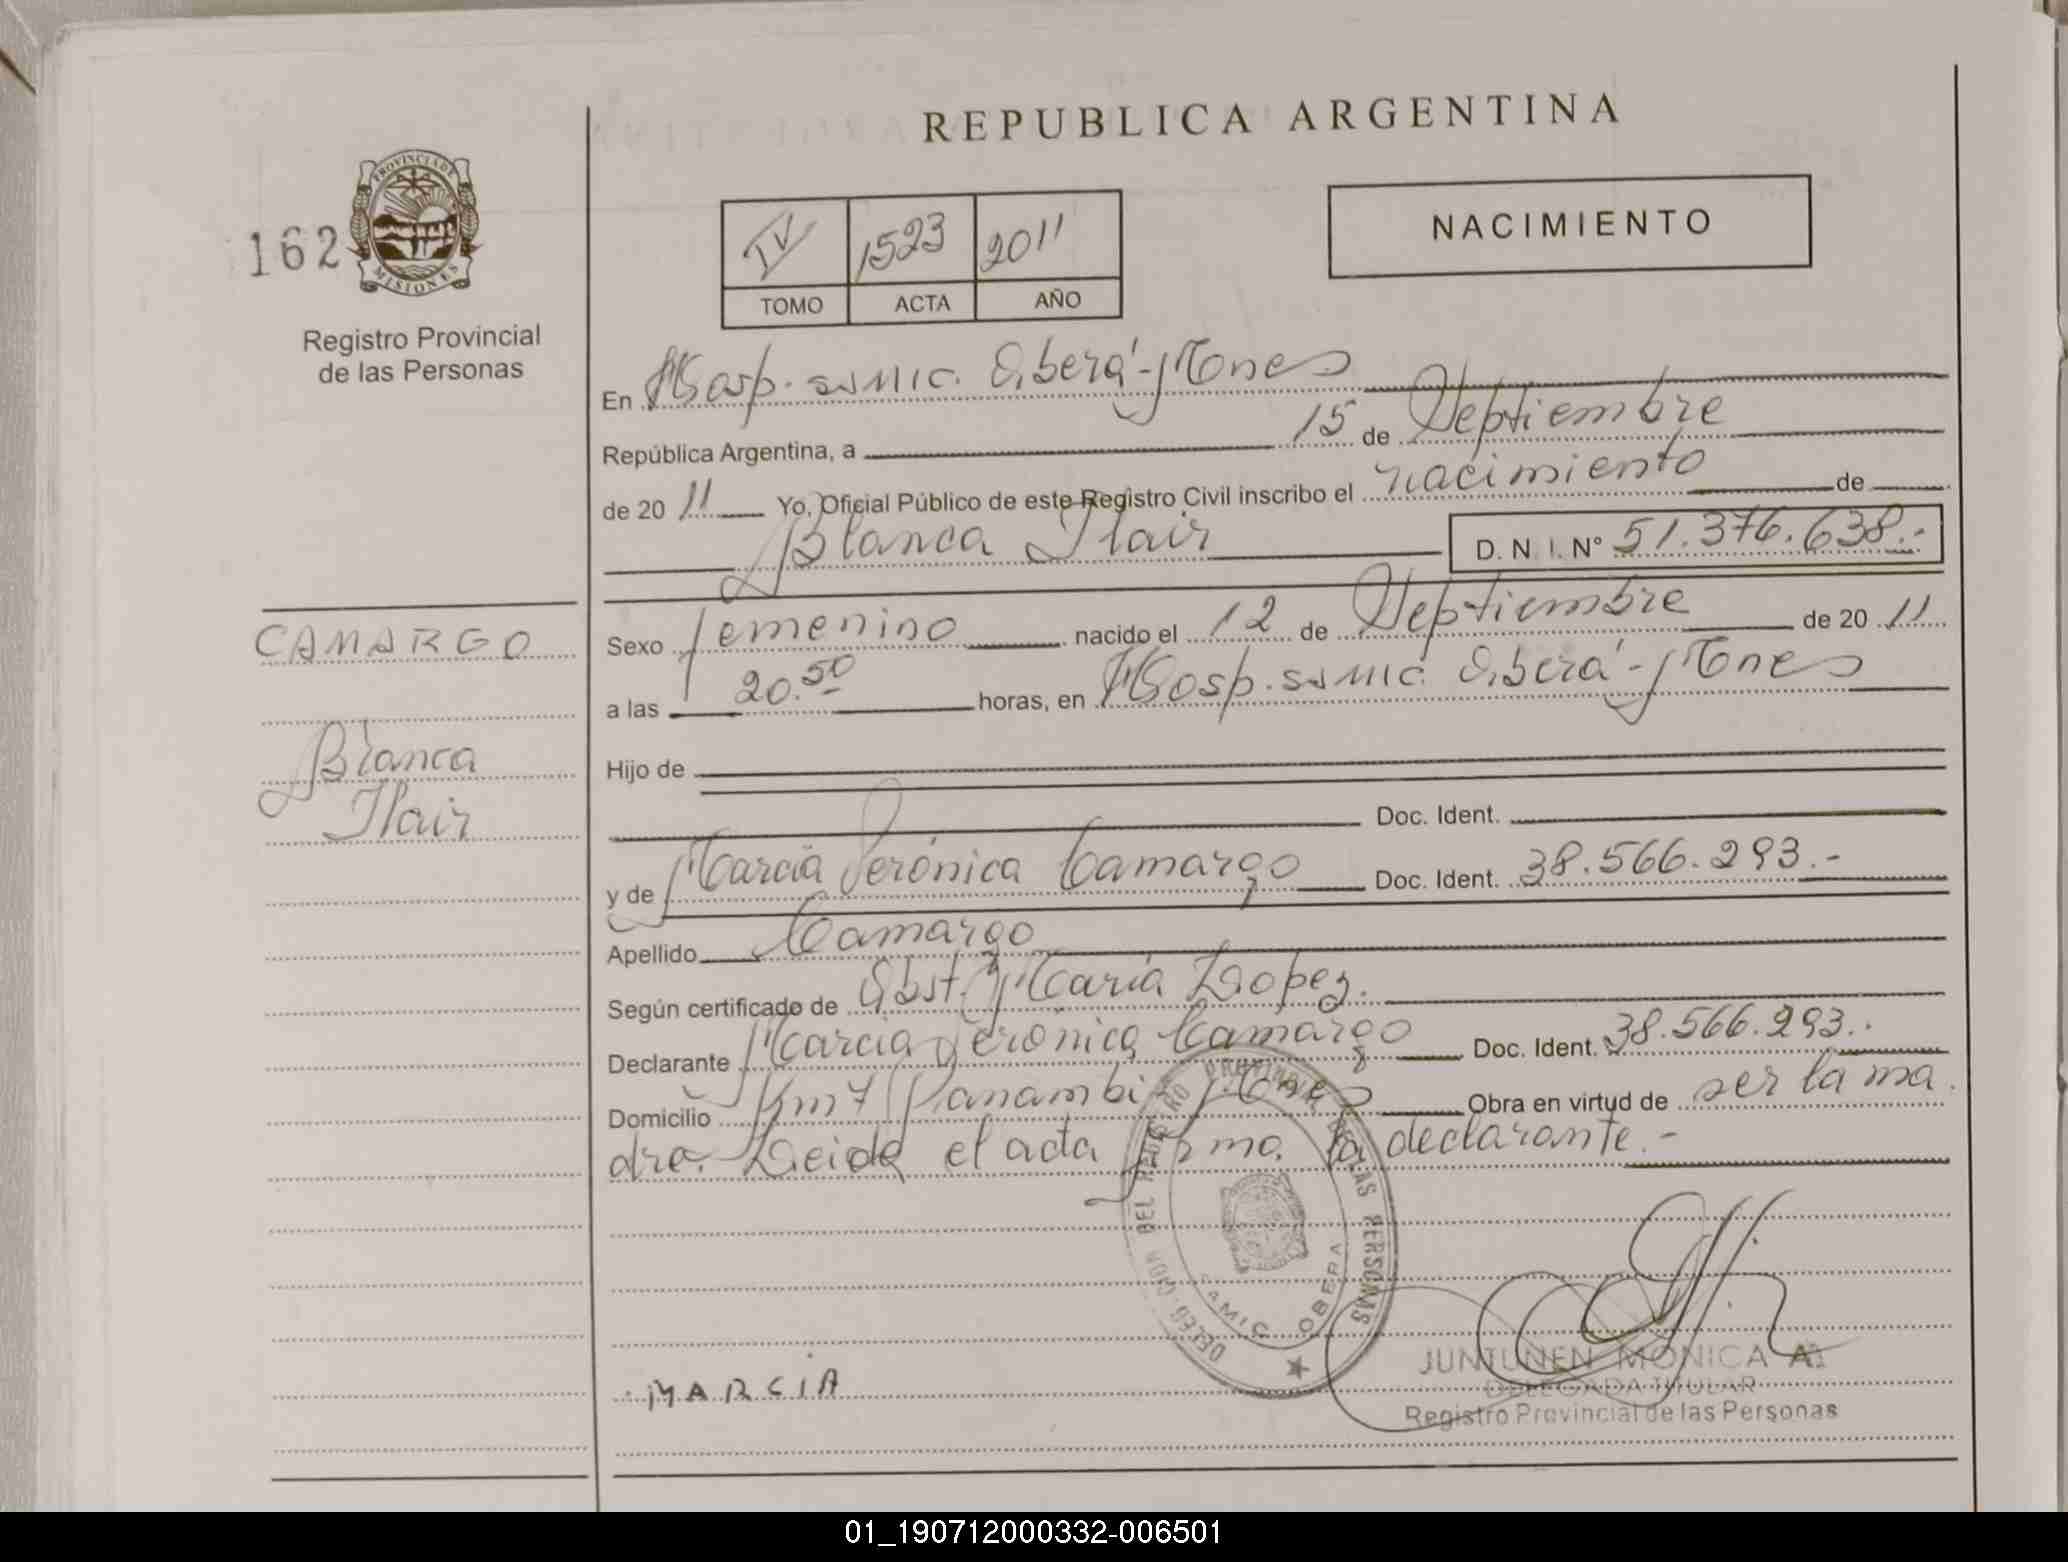 REPUBLICA ARGENTINA
PROVINCIA DE
MISIONES
162
Registro Provincial
de las Personas
IV 1523 2011
TOMO ACTA AÑO
NACIMIENTO
En Hosp. SAMIC. Oberá-Mnes
República Argentina, a 15 de Septiembre
de 2011 Yo, Oficial Público de este Registro Civil inscribo el nacimiento de
Blanca Itair D. N. I. N° 51.376.638.-
Sexo femenino nacido el 12 de Septiembre de 2011
a las 20.50 horas, en Hosp. SAMIC. Oberá-Mnes
Hijo de
Doc. Ident.
y de Marcia Verónica Camargo Doc. Ident. 38.566.293.-
Apellido Camargo
Según certificado de Obst. María Lopez.
Declarante Marcia Verónica Camargo Doc. Ident. 38.566.293.-
Domicilio Km 7 Panambi Mnes Obra en virtud de ser la ma
dre. Leida el acta firma la declarante.-
CAMARGO
Blanca
Itair
DELEGACION DEL REGISTRO PROVINCIAL DE LAS PERSONAS
SAMIC OBERA
MARCIA
JUNTUNEN MONICA A.
DELEGADA TITULAR
Registro Provincial de las Personas
01_190712000332-006501